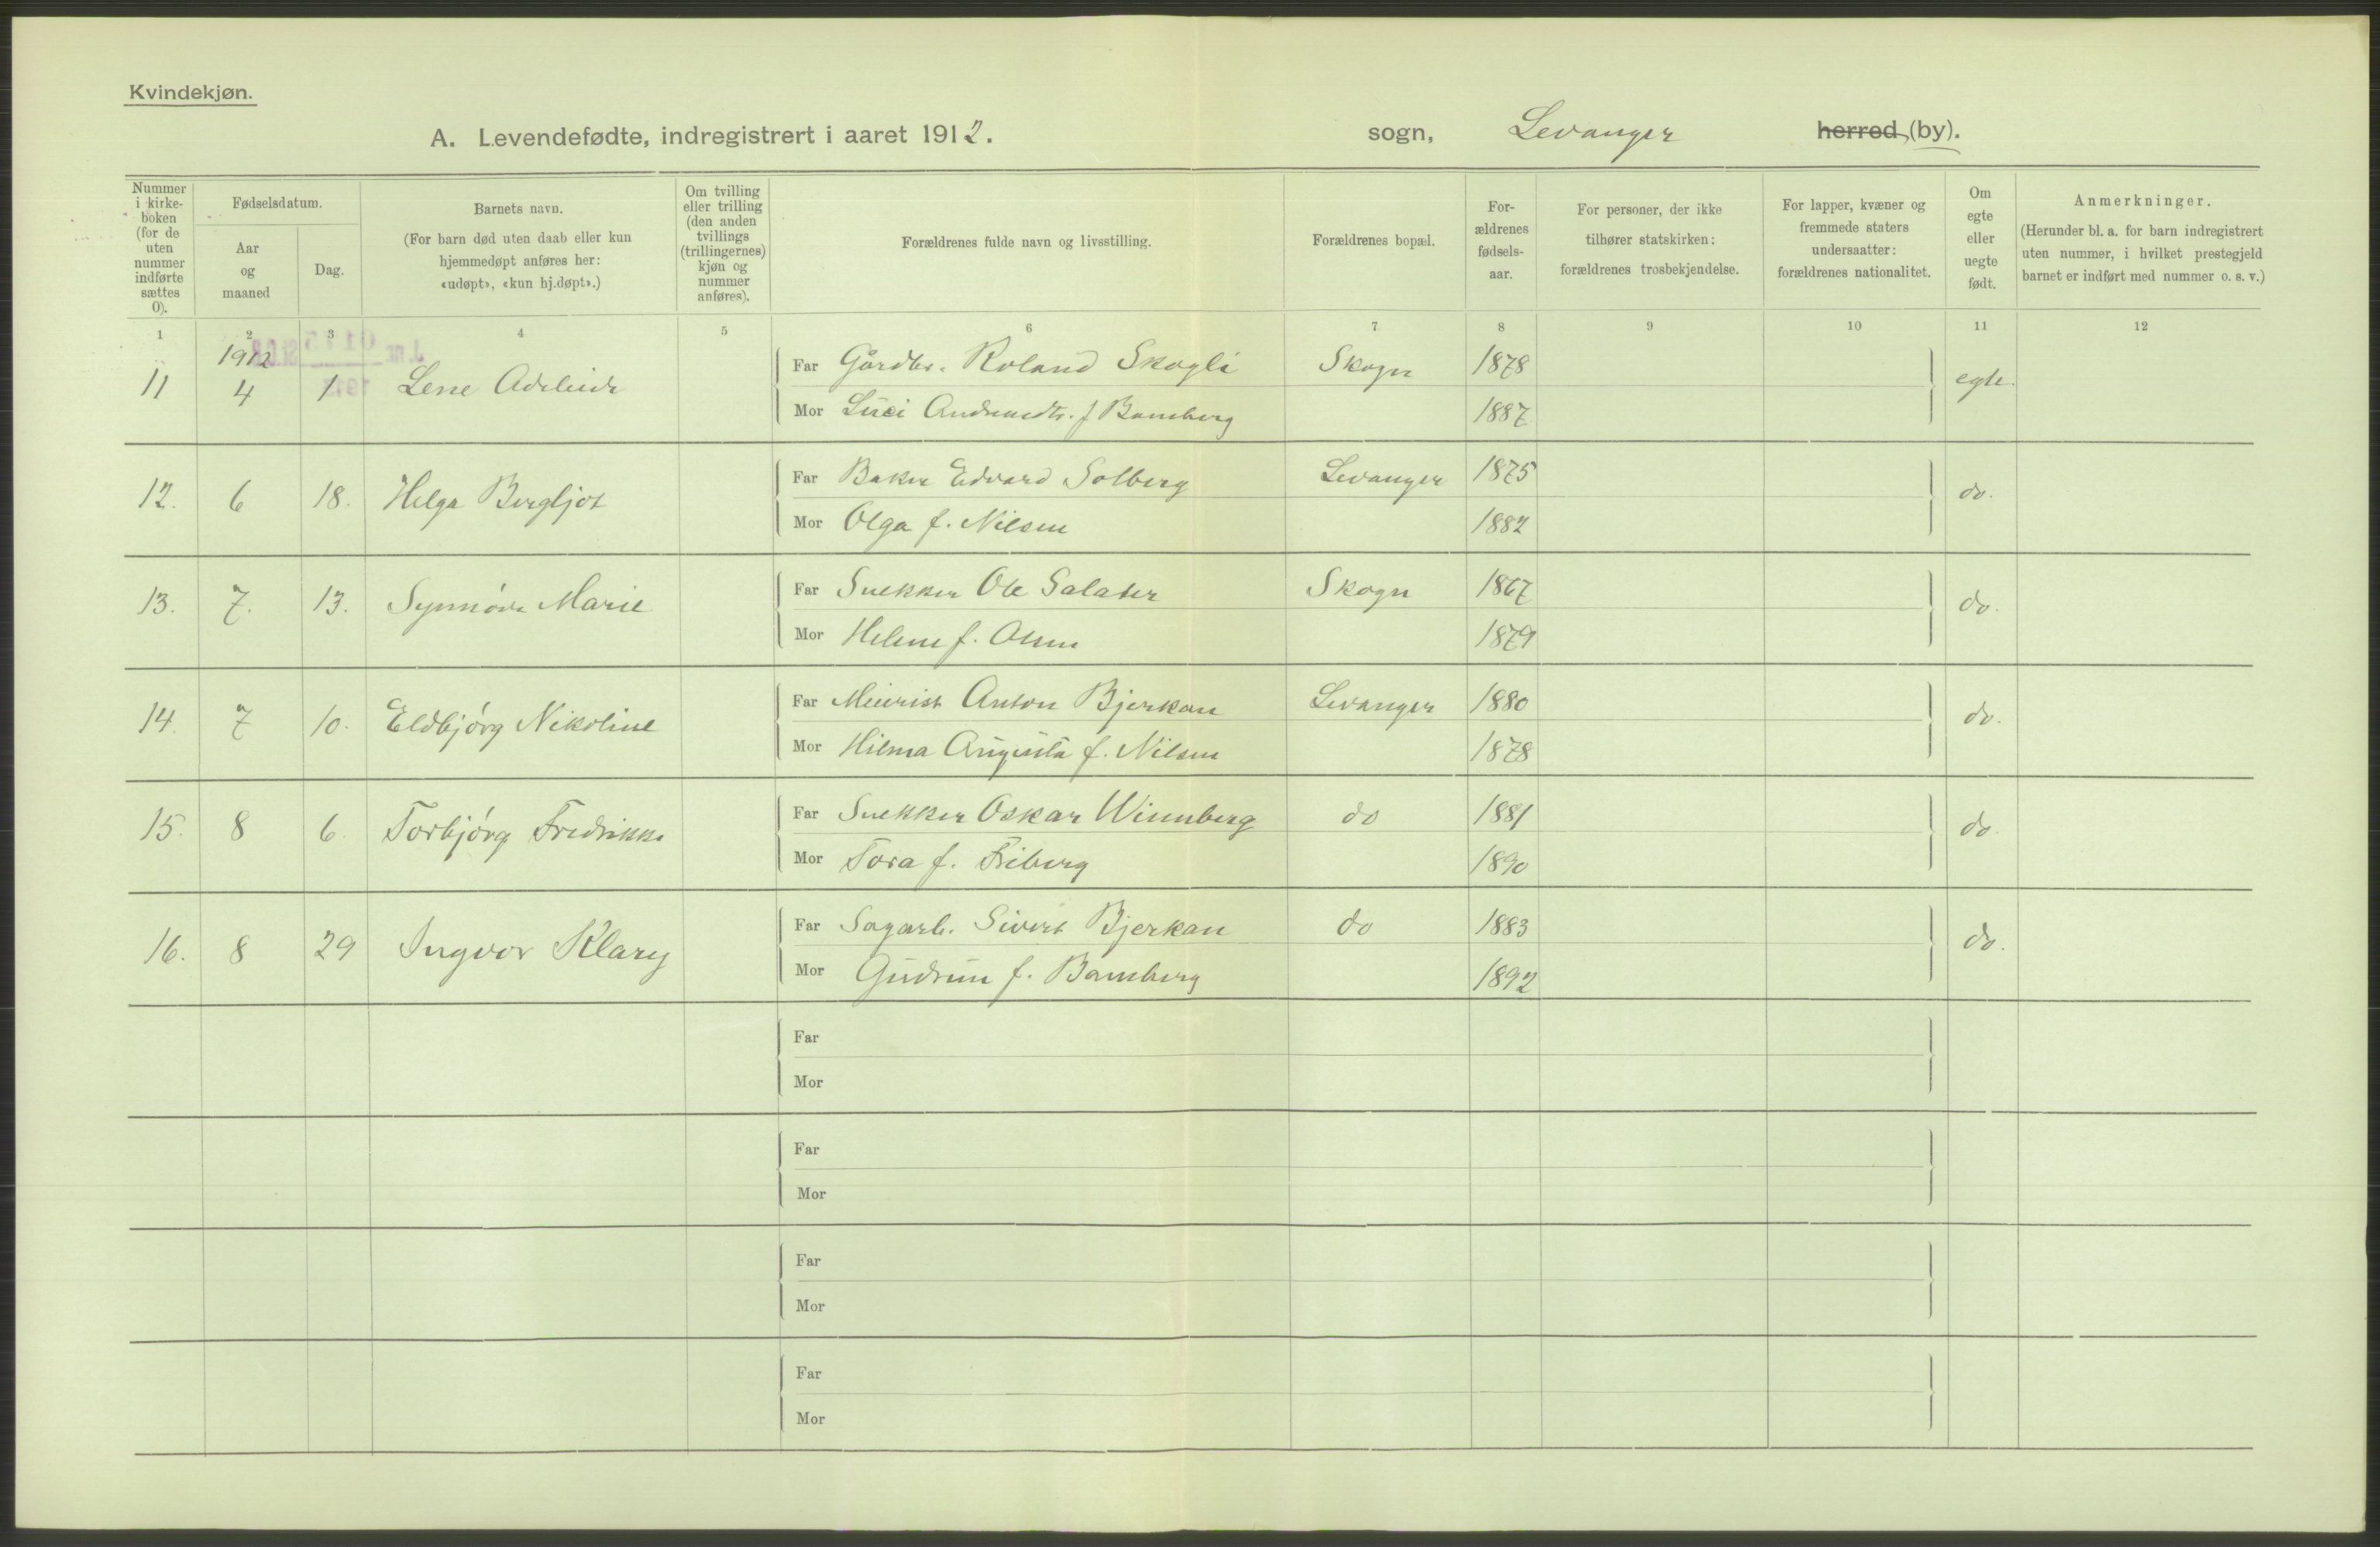 Kvindekjøn.
A. Levendefødte, indregistrert i aaret 1912. sogn, Levanger herred (by).
Nummer i kirke-boken (for de uten nummer indførte sættes 0).
Fødselsdatum.
Aar og maaned
Dag.
Barnets navn.
(For barn død uten daab eller kun hjemmedøpt anføres her: «udøpt», «kun hj.døpt».)
Om tvilling eller trilling (den anden tvillings (trillingernes) kjøn og nummer anføres).
Forældrenes fulde navn og livsstilling.
Forældrenes bopæl.
For-ældrenes fødsels-aar.
For personer, der ikke tilhører statskirken: forældrenes trosbekjendelse.
For lapper, kvæner og fremmede staters undersaatter: forældrenes nationalitet.
Om egte eller uegte født.
Anmerkninger.
(Herunder bl. a. for barn indregistrert uten nummer, i hvilket prestegjeld barnet er indført med nummer o. s. v.)
1 2 3 4 5 6 7 8 9 10 11 12
1912
11 4 1 Lene Adeleide Far Gårdbr. Roland Skogli Skogn 1878 egte.
Mor Luci f Bamberg 1887
12. 6 18. Helga Bergljot Far Baker Edvard Solberg Levanger 1875 do.
Mor Olga f. Nilsen 1882
13. 7. 13. Synnöve Marie Far Snekker Ole Salater Skogn 1867 do.
Mor Helene f. Olsen 1879
14. 7 10. Eldbjörg Nikoline Far Meierist Anton Bjerkan Levanger 1880 do.
Mor Hilma Augusta f. Nilsen 1878
15. 8 6. Torbjörg Fredrikke Far Snekker Oskar Winnberg do 1881 do.
Mor Tora f. Friberg 1890
16. 8 29 Ingvor Klary Far Sagarb. Sivert Bjerkan do 1883 do.
Mor Gudrun f. Bamberg 1892
Far
Mor
Far
Mor
Far
Mor
Far
Mor